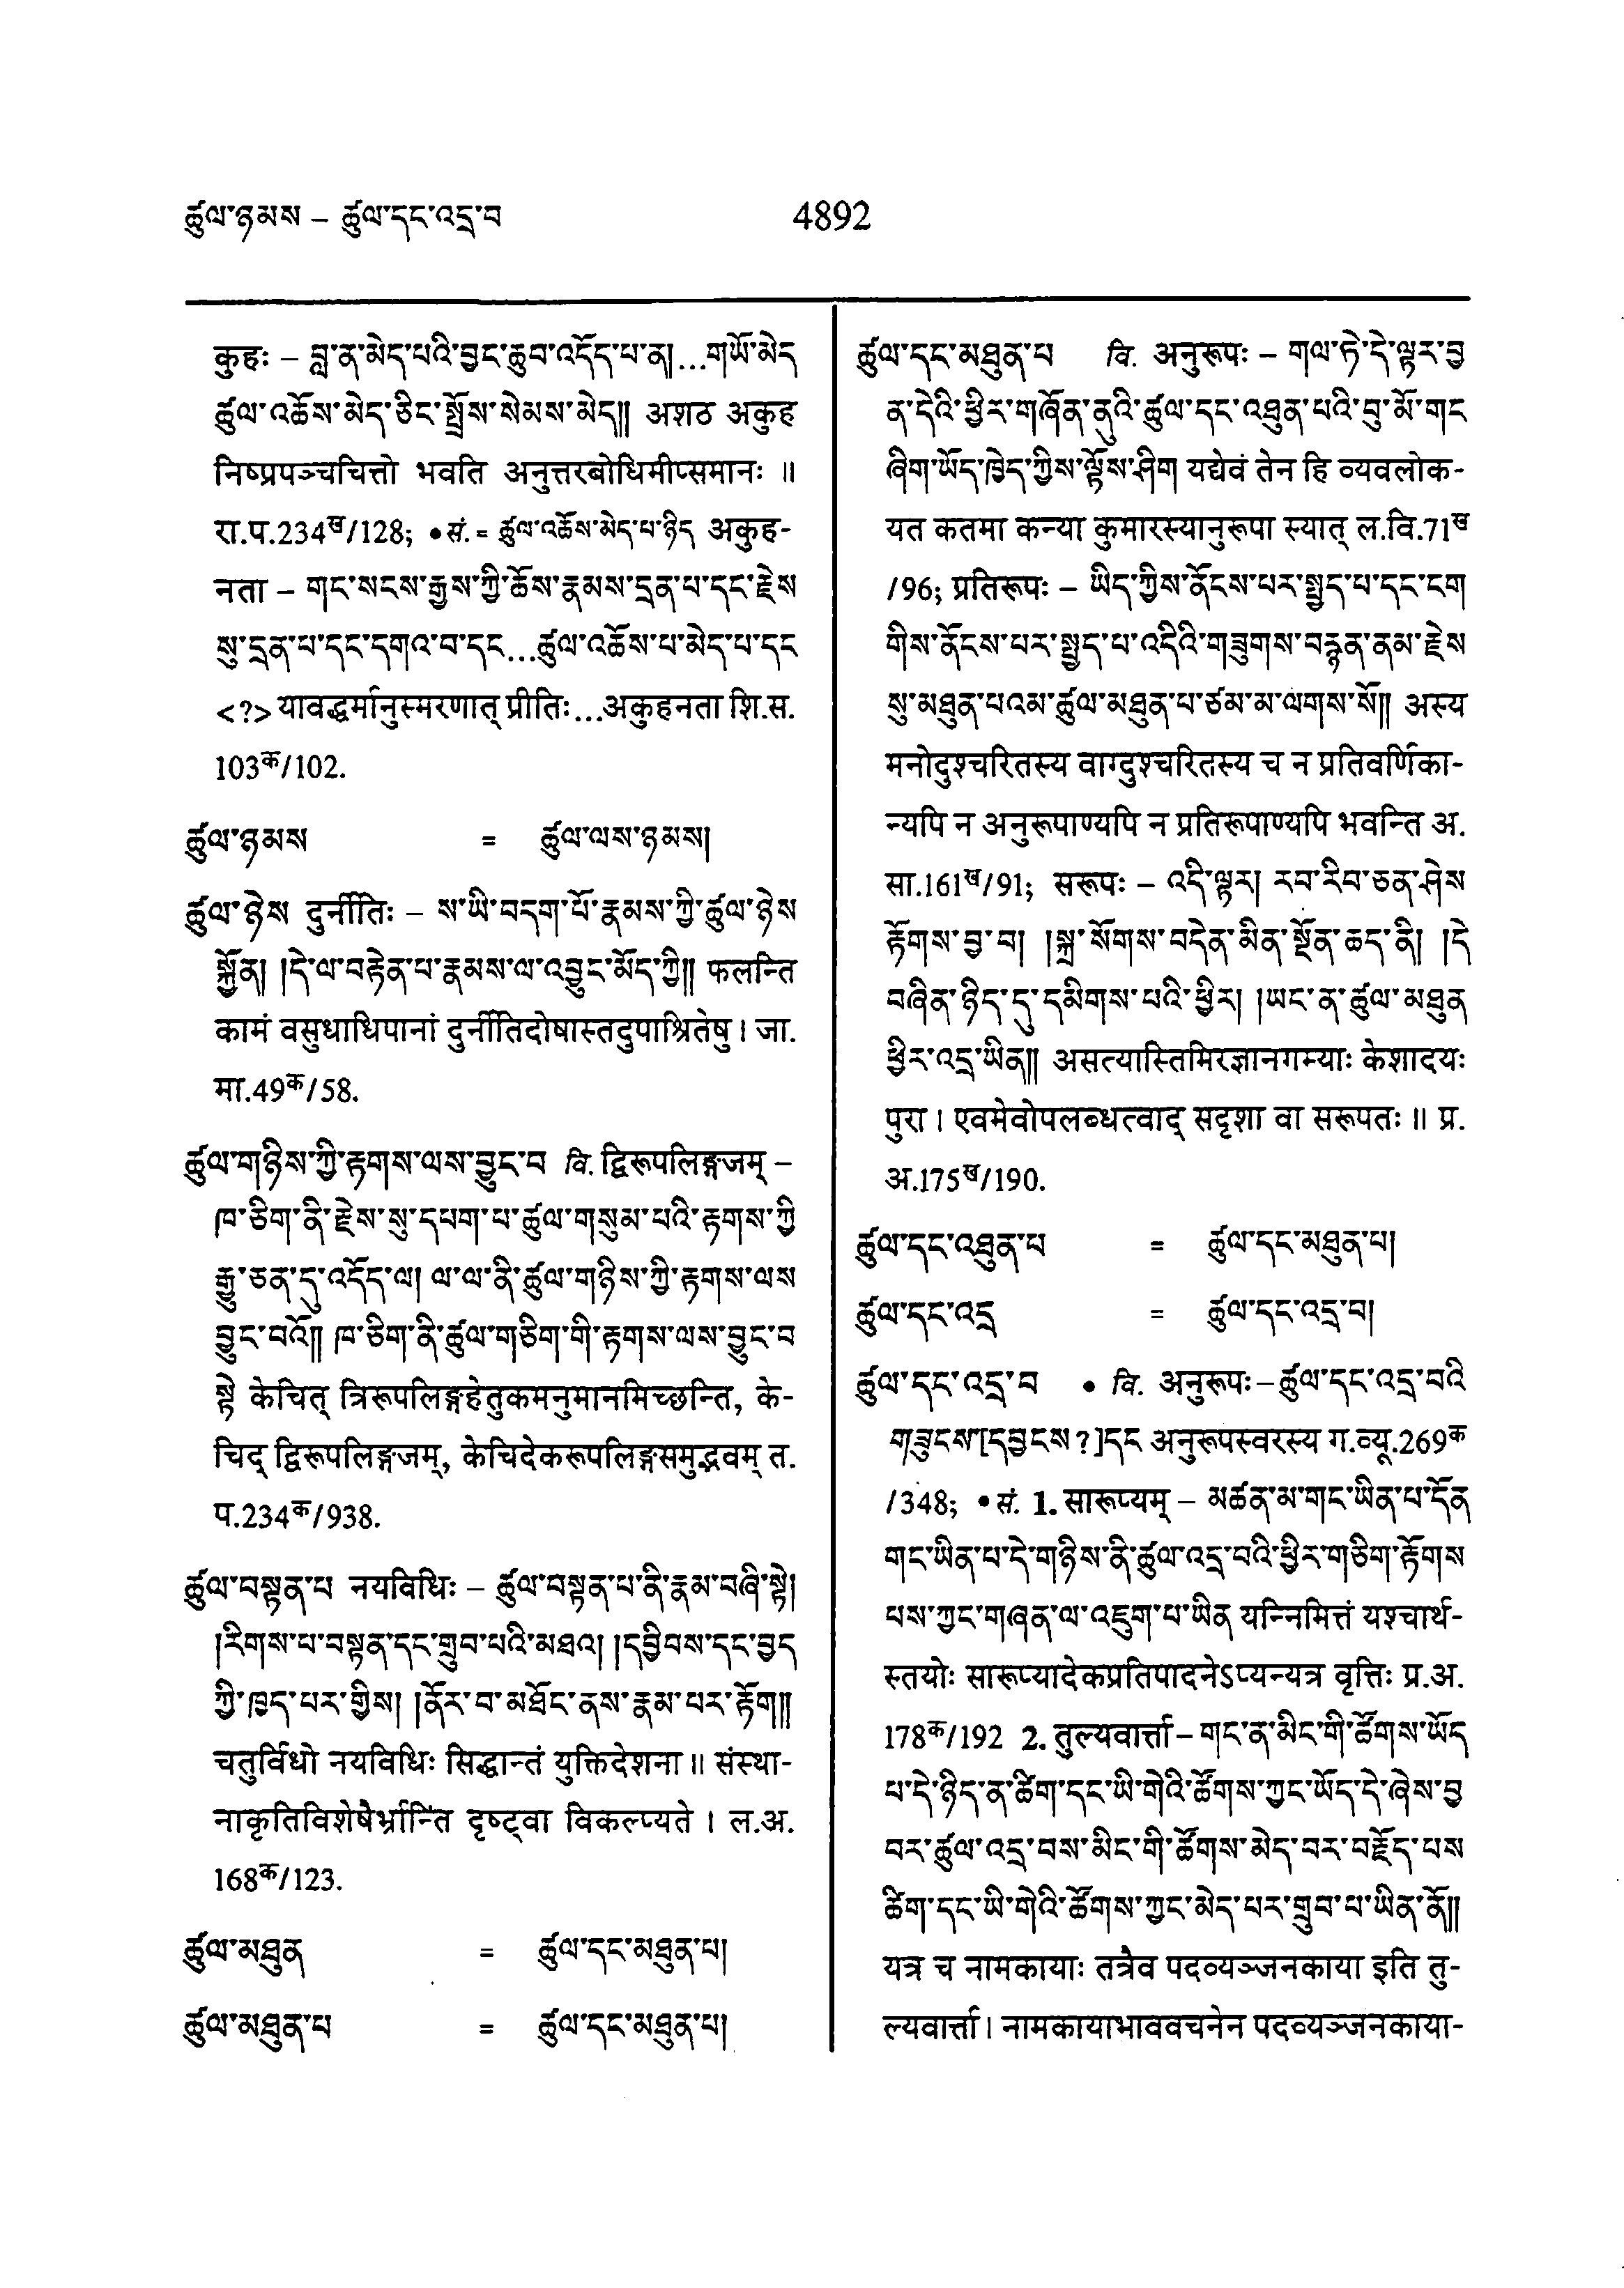 ཚུལ་ཉམས – ཚུལ་དང་འདྲ་བ
4892
कुहः – བླ་ན་མེད་པའི་བྱང་ཆུབ་འདོད་པ་ན།...གཡོ་མེད
ཚུལ་འཆོས་མེད་ཅིང་སྤྲོས་སེམས་མེད།། अशठ अकुह
निष्प्रपञ्चचित्तो भवति अनुत्तरबोधिमीप्समानः ॥
रा.प.234ख/128; •सं.= ཚུལ་འཆོས་མེད་པ་ཉིད अकुह-
नता – གང་སངས་རྒྱས་ཀྱི་ཆོས་རྣམས་དྲན་པ་དང་རྗེས
སུ་དྲན་པ་དང་དགའ་བ་དང...ཚུལ་འཆོས་པ་མེད་པ་དང
<?> यावद्धर्मानुस्मरणात् प्रीतिः...अकुहनता शि.स.
103क/102.
ཚུལ་ཉམས = ཚུལ་ལས་ཉམས།
ཚུལ་ཉེས दुर्नीतिः – ས་ཡི་བདག་པོ་རྣམས་ཀྱི་ཚུལ་ཉེས
སྐྱོན། །དེ་ལ་བརྟེན་པ་རྣམས་ལ་འབྱུང་མོད་ཀྱི།། फलन्ति
कामं वसुधाधिपानां दुर्नीतिदोषास्तदुपाश्रितेषु । जा.
मा.49क/58.
ཚུལ་གཉིས་ཀྱི་རྟགས་ལས་བྱུང་བ वि. द्विरूपलिङ्गजम् –
ཁ་ཅིག་ནི་རྗེས་སུ་དཔག་པ་ཚུལ་གསུམ་པའི་རྟགས་ཀྱི
རྒྱུ་ཅན་དུ་འདོད་ལ། ལ་ལ་ནི་ཚུལ་གཉིས་ཀྱི་རྟགས་ལས
བྱུང་བའོ།། ཁ་ཅིག་ནི་ཚུལ་གཅིག་གི་རྟགས་ལས་བྱུང་བ
སྟེ केचित् त्रिरूपलिङ्गहेतुकमनुमानमिच्छन्ति, के-
चिद् द्विरूपलिङ्गजम्, केचिदेकरूपलिङ्गसमुद्भवम् त.
प.234क/938.
ཚུལ་བསྟན་པ नयविधिः – ཚུལ་བསྟན་པ་ནི་རྣམ་བཞི་སྟེ།
།རིགས་པ་བསྟན་དང་གྲུབ་པའི་མཐའ། །དབྱིབས་དང་བྱད
ཀྱི་ཁྱད་པར་གྱིས། །ནོར་བ་མཐོང་ནས་རྣམ་པར་རྟོག།།
चतुर्विधो नयविधिः सिद्धान्तं युक्तिदेशना ॥ संस्था-
नाकृतिविशेषैर्भ्रान्तिं दृष्ट्वा विकल्प्यते । ल.अ.
168क/123.
ཚུལ་མཐུན = ཚུལ་དང་མཐུན་པ།
ཚུལ་མཐུན་པ = ཚུལ་དང་མཐུན་པ།
ཚུལ་དང་མཐུན་པ वि. अनुरूपः – གལ་ཏེ་དེ་ལྟར་བྱ
ན་དེའི་ཕྱིར་གཞོན་ནུའི་ཚུལ་དང་འཐུན་པའི་བུ་མོ་གང
ཞིག་ཡོད་ཁྱེད་ཀྱིས་ལྟོས་ཤིག यद्येवं तेन हि व्यवलोक-
यत कतमा कन्या कुमारस्यानुरूपा स्यात् ल.वि.71ख
/96; प्रतिरूपः – ཡིད་ཀྱིས་ནོངས་པར་སྤྱད་པ་དང་ངག
གིས་ནོངས་པར་སྤྱད་པ་འདིའི་གཟུགས་བརྙན་ནམ་རྗེས
སུ་མཐུན་པའམ་ཚུལ་མཐུན་པ་ཙམ་མ་ལགས་སོ།། अस्य
मनोदुश्चरितस्य वाग्दुश्चरितस्य च न प्रतिवर्णिका-
न्यपि न अनुरूपाण्यपि न प्रतिरूपाण्यपि भवन्ति अ.
सा.161ख/91; सरूपः – འདི་ལྟར། རབ་རིབ་ཅན་ཤེས
རྟོགས་བྱ་བ། །སྐྲ་སོགས་བདེན་མིན་སྔོན་ཆད་ནི། །དེ
བཞིན་ཉིད་དུ་དམིགས་པའི་ཕྱིར། །ཡང་ན་ཚུལ་མཐུན
ཕྱིར་འདྲ་ཡིན།། असत्यास्तिमिरज्ञानगम्याः केशादयः
पुरा । एवमेवोपलब्धत्वाद् सदृशा वा सरूपतः ॥ प्र.
अ.175ख/190.
ཚུལ་དང་འཐུན་པ = ཚུལ་དང་མཐུན་པ།
ཚུལ་དང་འདྲ = ཚུལ་དང་འདྲ་བ།
ཚུལ་དང་འདྲ་བ • वि. अनुरूपः – ཚུལ་དང་འདྲ་བའི
གཟུངས[དབྱངས?]དང अनुरूपस्वरस्य ग.व्यू.269क
/348; •सं. 1. सारूप्यम् – མཚན་མ་གང་ཡིན་པ་དོན
གང་ཡིན་པ་དེ་གཉིས་ནི་ཚུལ་འདྲ་བའི་ཕྱིར་གཅིག་རྟོགས
པས་ཀྱང་གཞན་ལ་འཇུག་པ་ཡིན यन्निमित्तं यश्चार्थ-
स्तयोः सारूप्यादेकप्रतिपादनेऽप्यन्यत्र वृत्तिः प्र.अ.
178क/192 2. तुल्यवार्त्ता – གང་ན་མིང་གི་ཚོགས་ཡོད
པ་དེ་ཉིད་ན་ཚིག་དང་ཡི་གེའི་ཚོགས་ཀྱང་ཡོད་དེ་ཞེས་བྱ
བར་ཚུལ་འདྲ་བས་མིང་གི་ཚོགས་མེད་བར་བརྗོད་པས
ཚིག་དང་ཡི་གེའི་ཚོགས་ཀྱང་མེད་པར་གྲུབ་པ་ཡིན་ནོ།།
यत्र च नामकायाः तत्रैव पदव्यञ्जनकाया इति तु-
ल्यवार्त्ता । नामकायाभाववचनेन पदव्यञ्जनकाया-